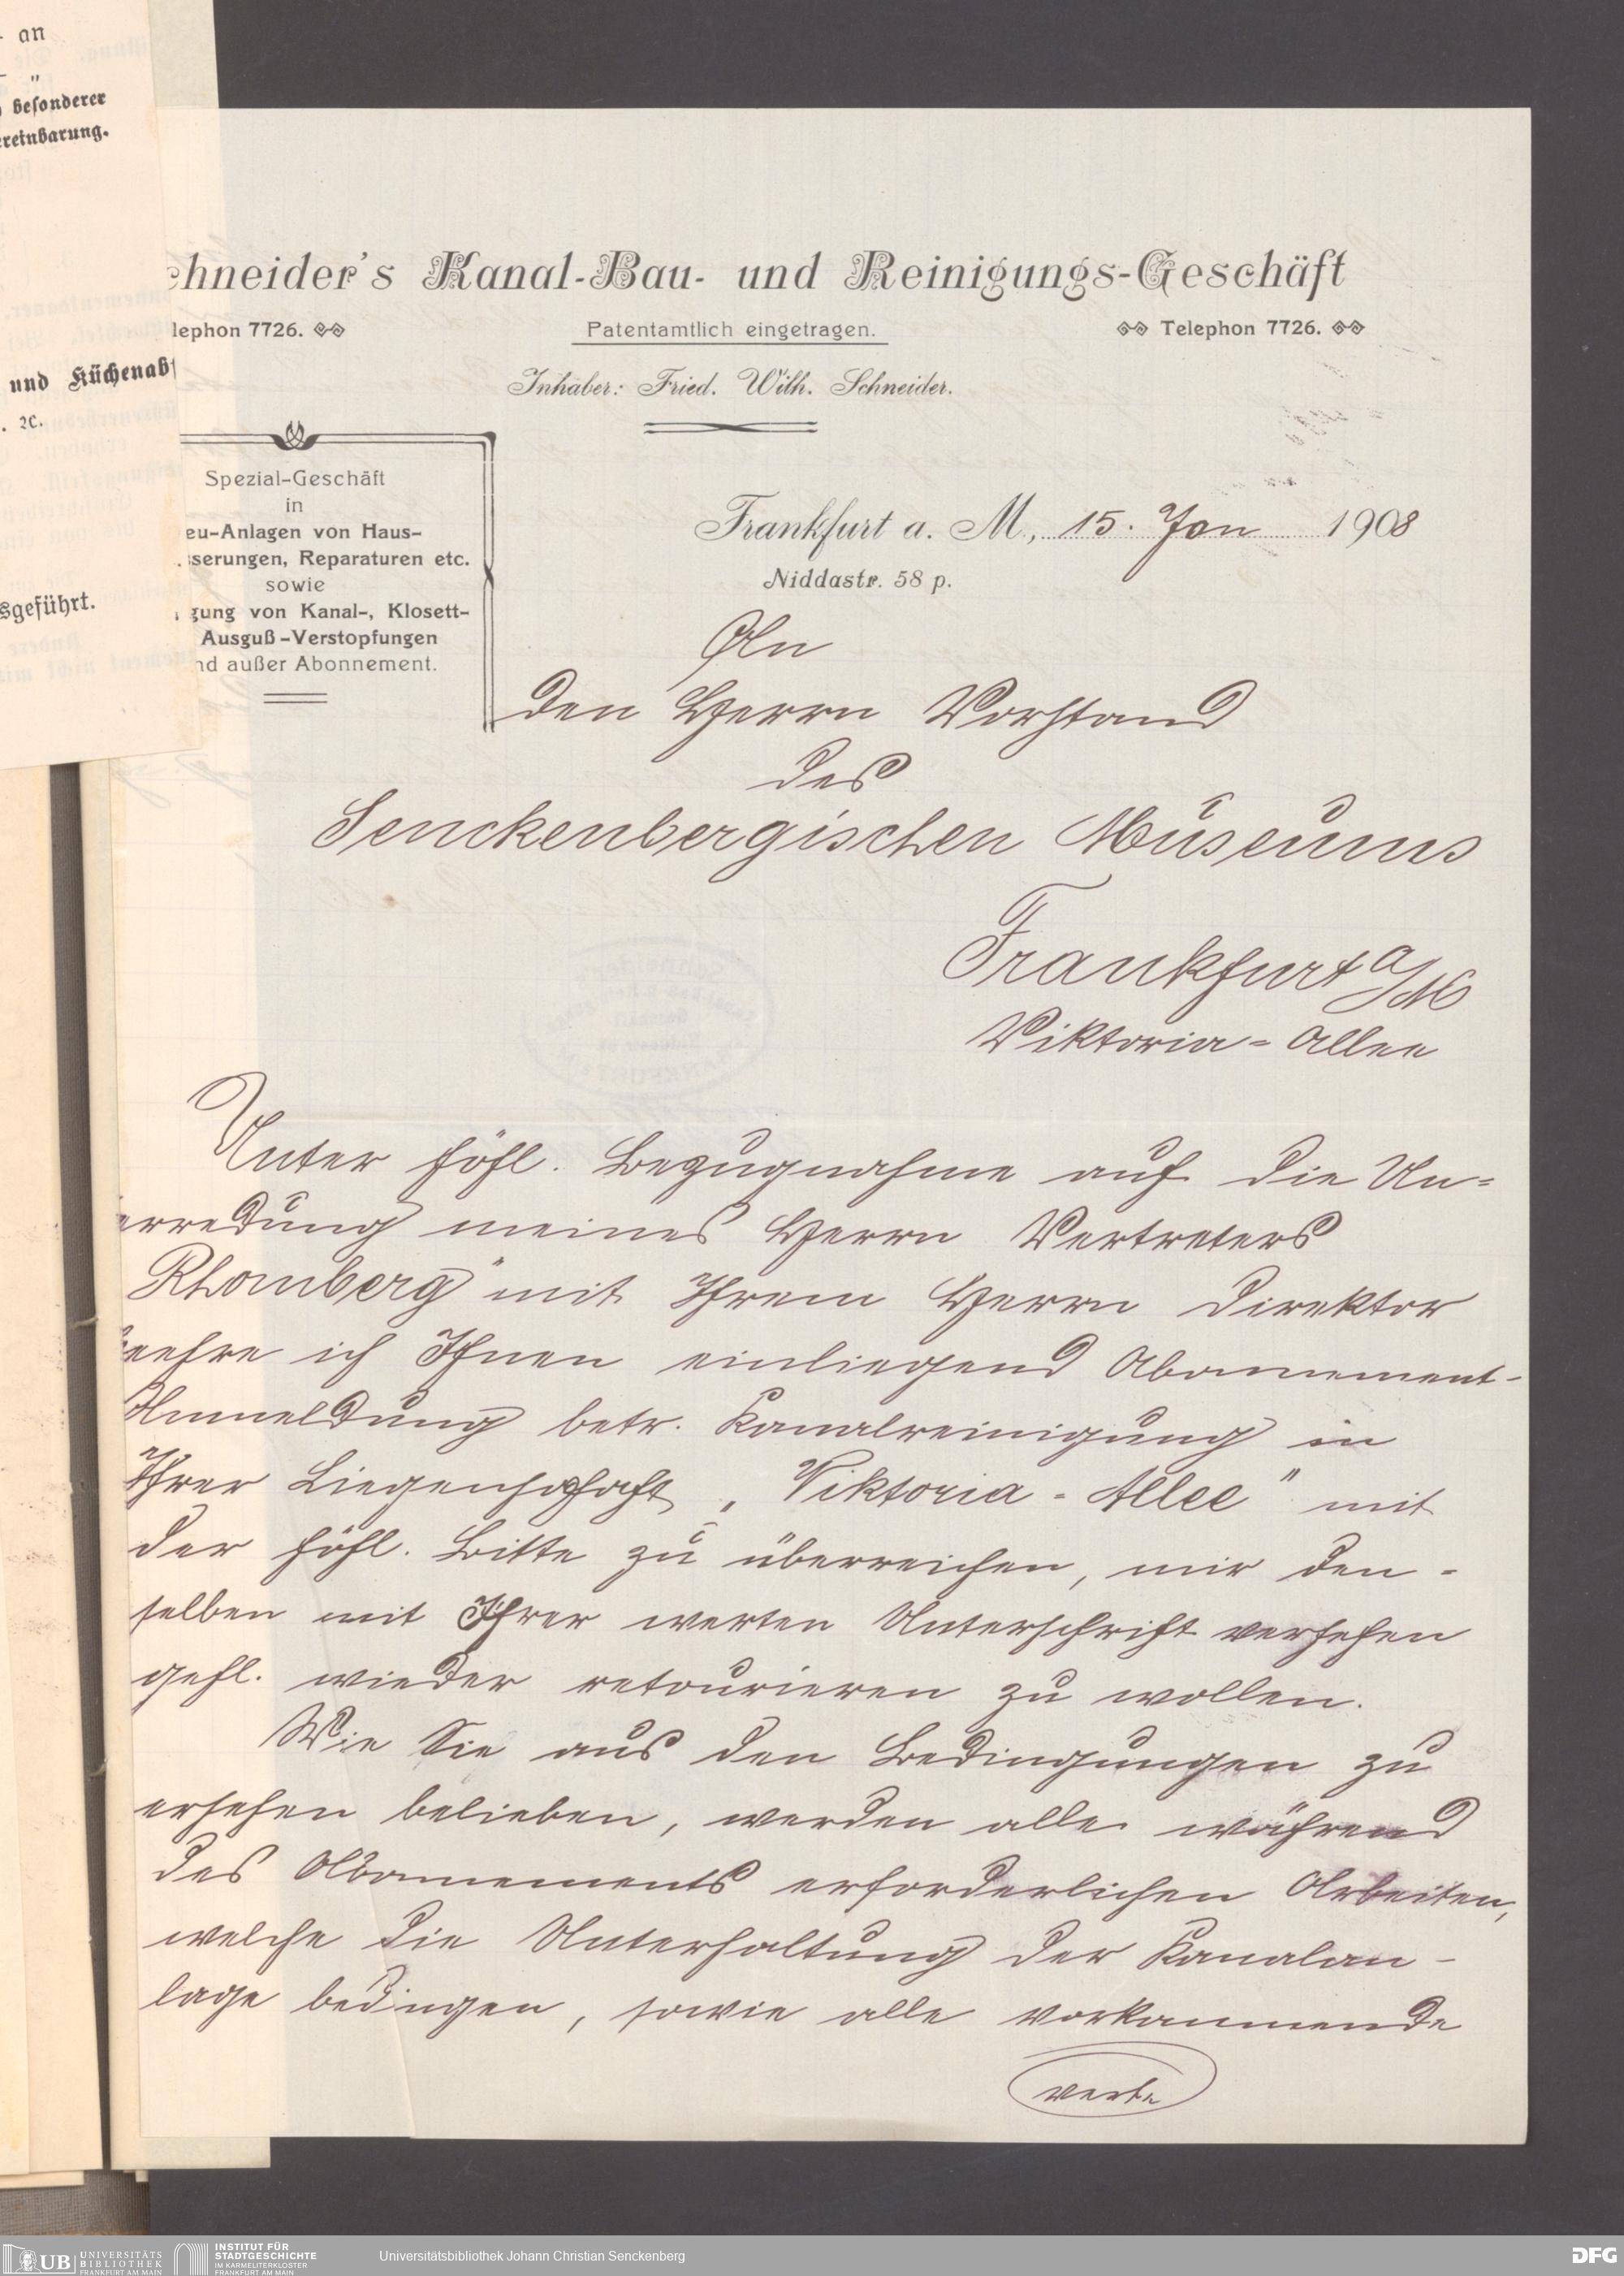 an
"
besonderer
ereinbarung.
und Küchenab
. ꝛc.
sgeführt.
chneider's Kanal-Bau- und Reinigungs-Geschäft
lephon 7726.
Patentamtlich eingetragen.
Telephon 7726.
Inhaber: Fried. Wilh. Schneider.
Spezial-Geschäft
in
eu-Anlagen von Haus-
sserungen, Reparaturen etc.
sowie
gung von Kanal-, Klosett-
Ausguß-Verstopfungen
nd außer Abonnement.
Frankfurt a. M., 15. Jan 1908
Niddastr. 58 p.
An
den Herrn Vorstand
des
Senckenbergischen Museums
Frankfurt a/M
Viktoria-Allee
Unter höfl. Bezugnahme auf die Un-
erredung meines Herrn Vertreters
Rhomberg" mit Ihrem Herrn Direktor
eehre ich Ihnen einliegend Abonnement-
Anmeldung betr. Kanalreinigung in
Ihrer Liegenschaft „Viktoria-Allee" mit
der höfl. Bitte zu überreichen, mir den-
selben mit Ihrer werten Unterschrift versehen
gefl. wieder retourieren zu wollen.
Wie Sie aus den Bedingungen zu
ersehen belieben, werden alle während
des Abonnements erforderlichen Arbeiten,
welche die Unterhaltung der Kanalan-
lage bedingen, sowie alle vorkommende
verte
UB UNIVERSITÄTS
BIBLIOTHEK
FRANKFURT AM MAIN
INSTITUT FÜR
STADTGESCHICHTE
IM KARMELITERKLOSTER
FRANKFURT AM MAIN
Universitätsbibliothek Johann Christian Senckenberg
DFG